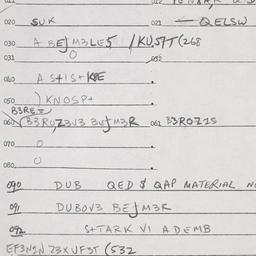 020 SUK 021 QELSW
030 A BEJM3LE5 /KUSTT(268
031 0 032
040 A S+IS+KE
050 ) KNOSP+
B3RE
060 B3ROZ3V3 BEJM3R 061 B3ROZ1S
070 0
080 0
090 DUB QED $ QAP MATERIAL
091 DUBOV3 BEJM3R
092 S+TARK VI ADEMB
(532